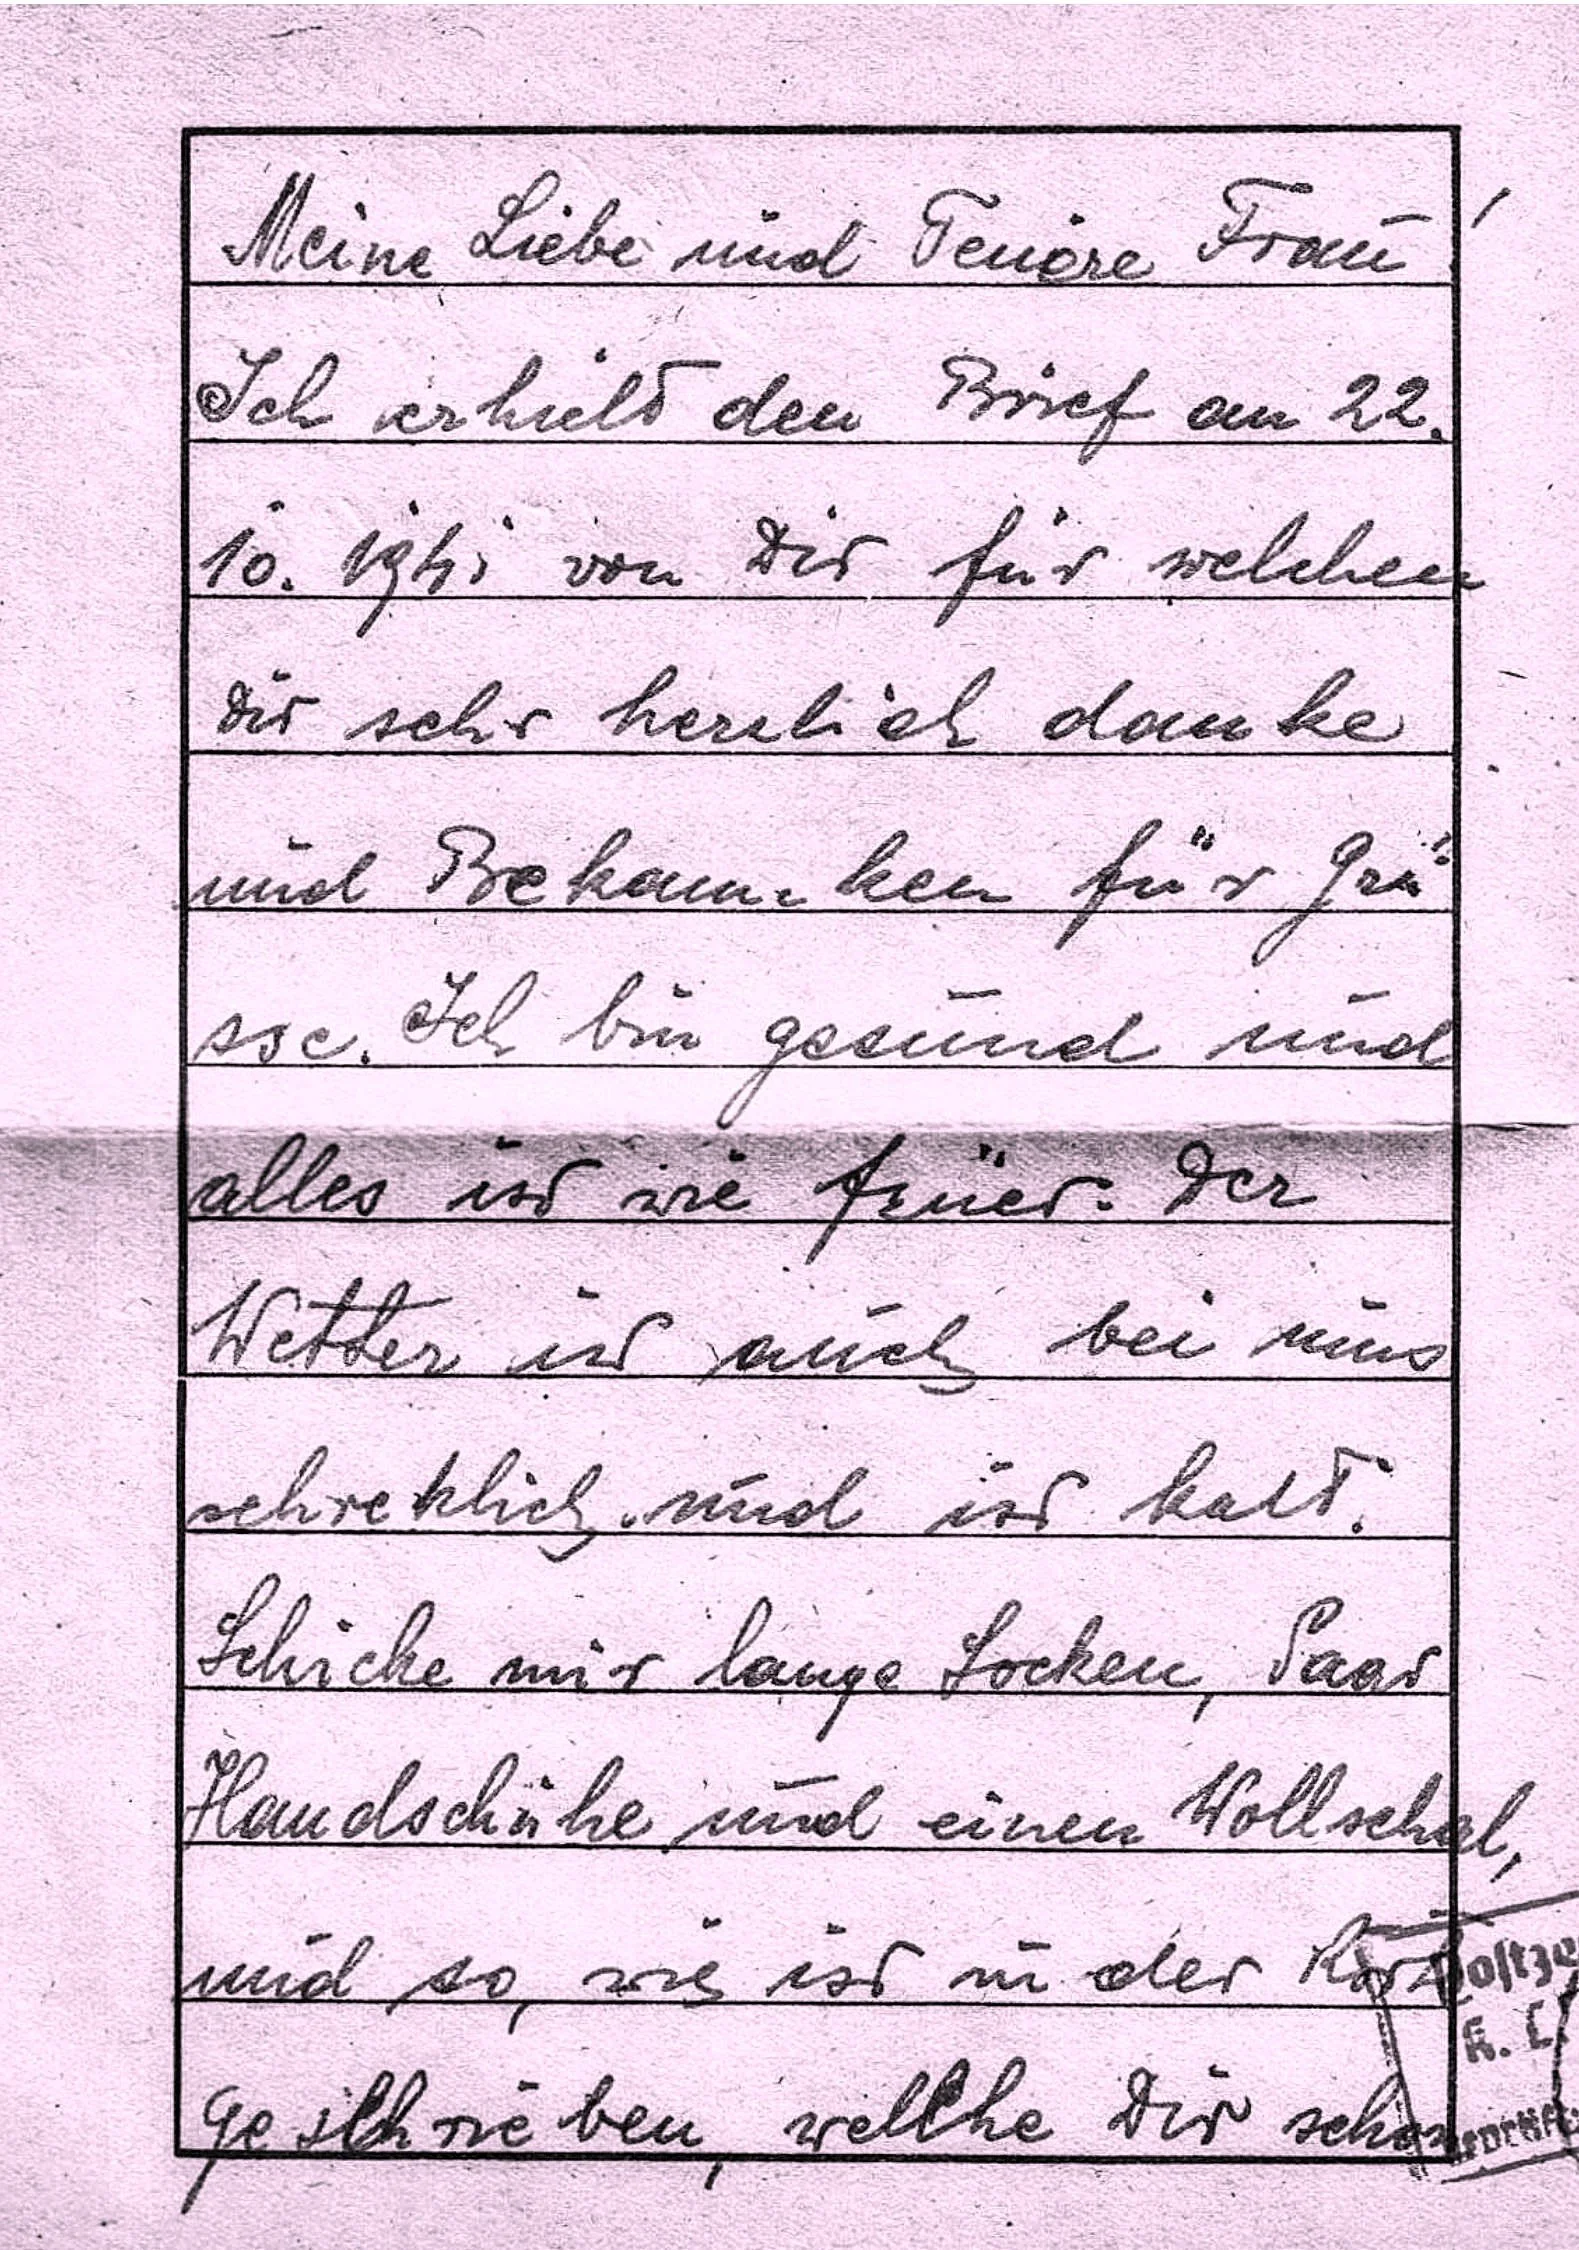 Meine Liebe und Teuore Frau!
Ich erhielt den Brief am 22.
10. 1941 von Dir für welchen
Dir sehr herzlich danke
und Bekannten für Grü
sse. Ich bin gesund und
alles ist wie früer. Der
Wetter ist auch bei uns
schreklich und ist kalt.
Schicke mir lange Socken, Paar
Handschuhe und einen Wollschal,
und so, wie ist in der
geschrieben, welche Dir schon
Postze
K. L.